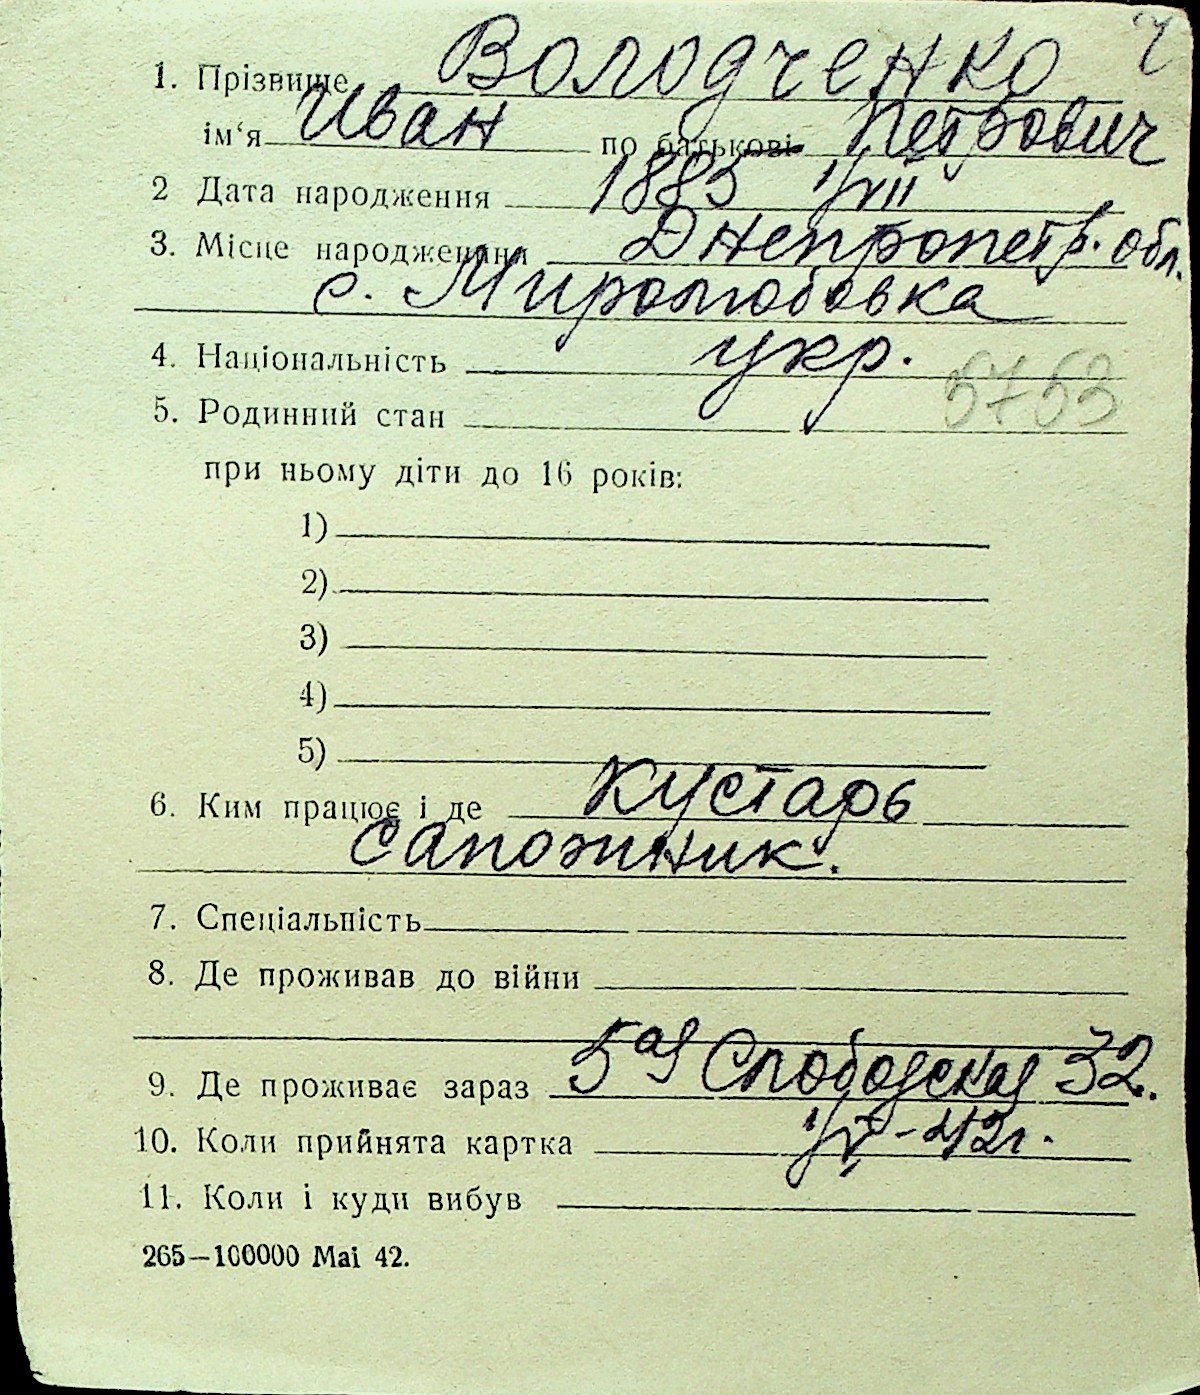 ч
1. Прізвище Володченко
ім‘я Иван по батькові Петрович
2 Дата народження 1885 1/VII
3. Місце народження Днепропетр. обл.
с. Миролюбовка
4. Національність укр.
5753
5. Родинний стан
при ньому діти до 16 років:
1)
2)
3)
4)
5)
6. Ким працює і де Кустарь
сапожник.
7. Спеціальність
8. Де проживав до війни
9. Де проживає зараз 5ая Слободская 32.
10. Коли прийнята картка 1/V-42г.
11. Коли і куди вибув
265—100000 Mai 42.